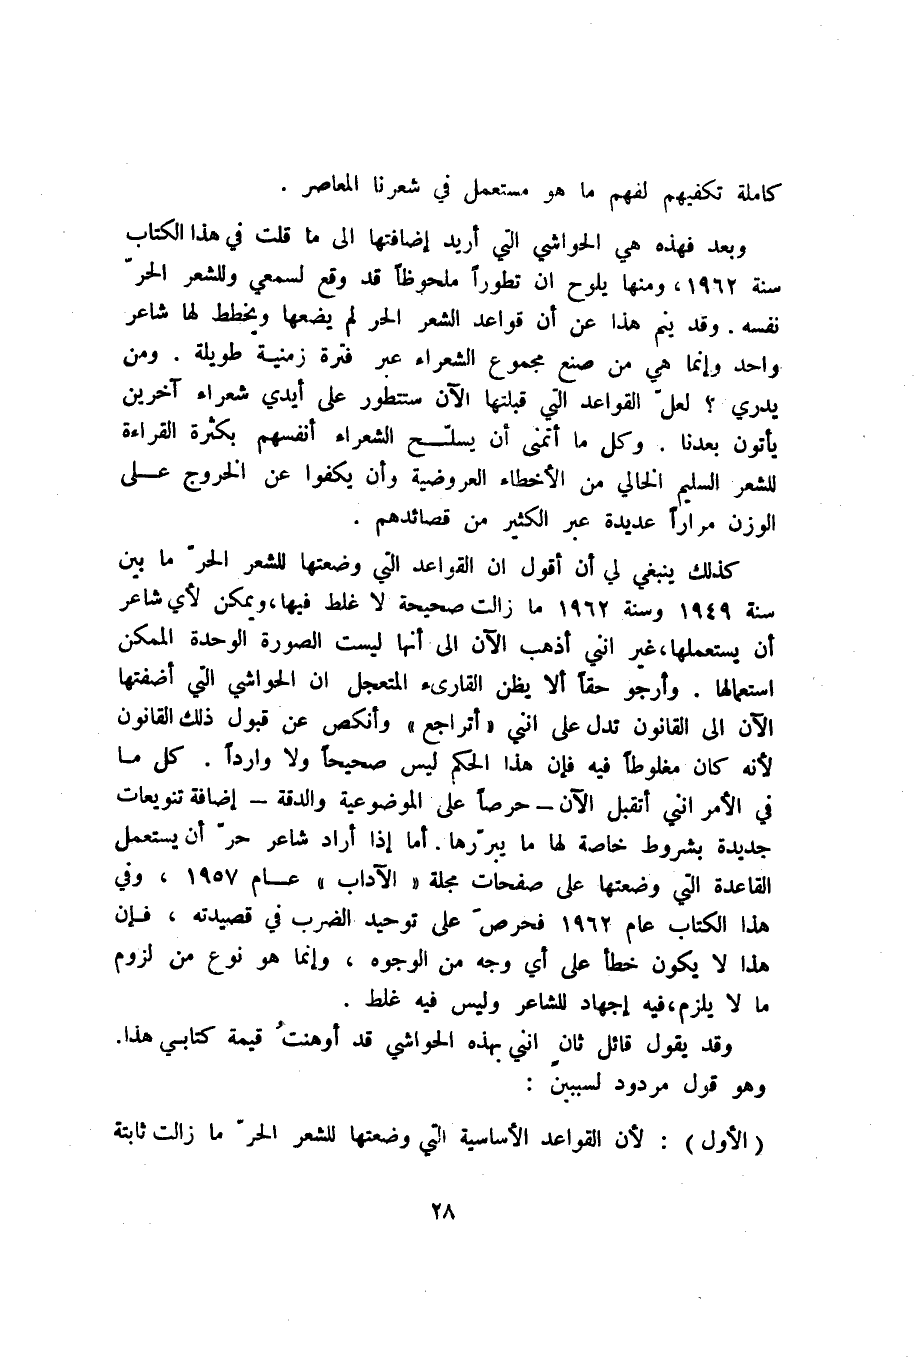 كاملة تكفيهم لفهم ما هو مستعمل في شعرنا المعاصر .
وبعد فهذه هي الحواشي التي أريد إضافتها الى ما قلت في هذا الكتاب
سنة ١٩٦٢، ومنها يلوح ان تطوراً ملحوظاً قد وقع لسمعي وللشعر الحرّ
نفسه . وقد ينم هذا عن أن قواعد الشعر الحر لم يضعها ويخطط لها شاعر
واحد وإنما هي من صنع مجموع الشعراء عبر فترة زمنيـة طويلة . ومن
يدري ؟ لعلّ القواعد التي قبلتها الآن ستتطور على أيدي شعراء آخرين
يأتون بعدنا . وكل ما أتمنى أن يسلّـــح الشعراء أنفسهم بكثرة القراءة
للشعر السليم الخالي من الأخطاء العروضية وأن يكفوا عن الخروج عــلى
الوزن مراراً عديدة عبر الكثير من قصائدهم .
كذلك ينبغي لي أن أقول ان القواعد التي وضعتها للشعر الحرّ ما بين
سنة ١٩٤٩ وسنة ١٩٦٢ ما زالت صحيحة لا غلط فيها،ويمكن لأي شاعر
أن يستعملها،غير انني أذهب الآن الى أنها ليست الصورة الوحدة الممكن
استعمالها . وأرجو حقاً ألا يظن القارىء المتعجل ان الحواشي التي أضفتها
الآن الى القانون تدل على انني « أتراجع » وأنكص عن قبول ذلك القانون
لأنه كان مغلوطاً فيه فإن هذا الحكم ليس صحيحاً ولا وارداً . كل مـا
في الأمر انني أتقبل الآن – حرصاً على الموضوعية والدقة – إضافة تنويعات
جديدة بشروط خاصة لها ما يبرّرها . أما إذا أراد شاعر حرّ أن يستعمل
القاعدة التي وضعتها على صفحات مجلة « الآداب » عـــام ١٩٥٧ ، وفي
هذا الكتاب عام ١٩٦٢ فحرصّ على توحيد الضرب في قصيدته ، فـإن
هذا لا يكون خطأ على أي وجه من الوجوه ، وإنما هو نوع من لزوم
ما لا يلزم،فيه إجهاد للشاعر وليس فيه غلط .
وقد يقول قائل ثانٍ انني بهذه الحواشي قد أوهنتُ قيمة كتابـي هذا.
وهو قول مردود لسببينّ :
( الأول ) : لأن القواعد الأساسية التي وضعتها للشعر الحرّ ما زالت ثابتة
٢٨